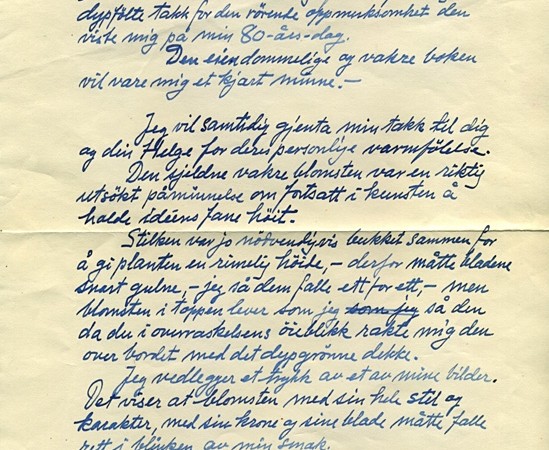 dypfölte takk for den rörende oppmerksomhet den
viste mig på min 80-års-dag.
Den eiendommelige og vakre boken
vil vare mig et kjært minne.-
Jeg vil samtidig gjenta min takk til dig
og din Helge for deres personlige varmfölelse.
Den sjeldne vakre blomsten var en riktig
utsökt påminnelse om fortsatt i kunsten å
holde idéens fane höit.
Stilken var jo nödvendigvis bukket sammen for
å gi planten en rimelig höide, - derfor måtte bladene
snart gulne, - jeg så dem falle ett for ett, - men
blomsten i toppen lever som jeg som jeg så den
da du i overraskelsens öieblikk rakte mig den
over bordet med det dypgrönne dekke.
Jeg vedlegger et trykk av et av mine bilder.
Det viser at blomsten med sin hele stil og
karakter, med sin krone og sine blade måtte falle
rett i blinken av min smak.